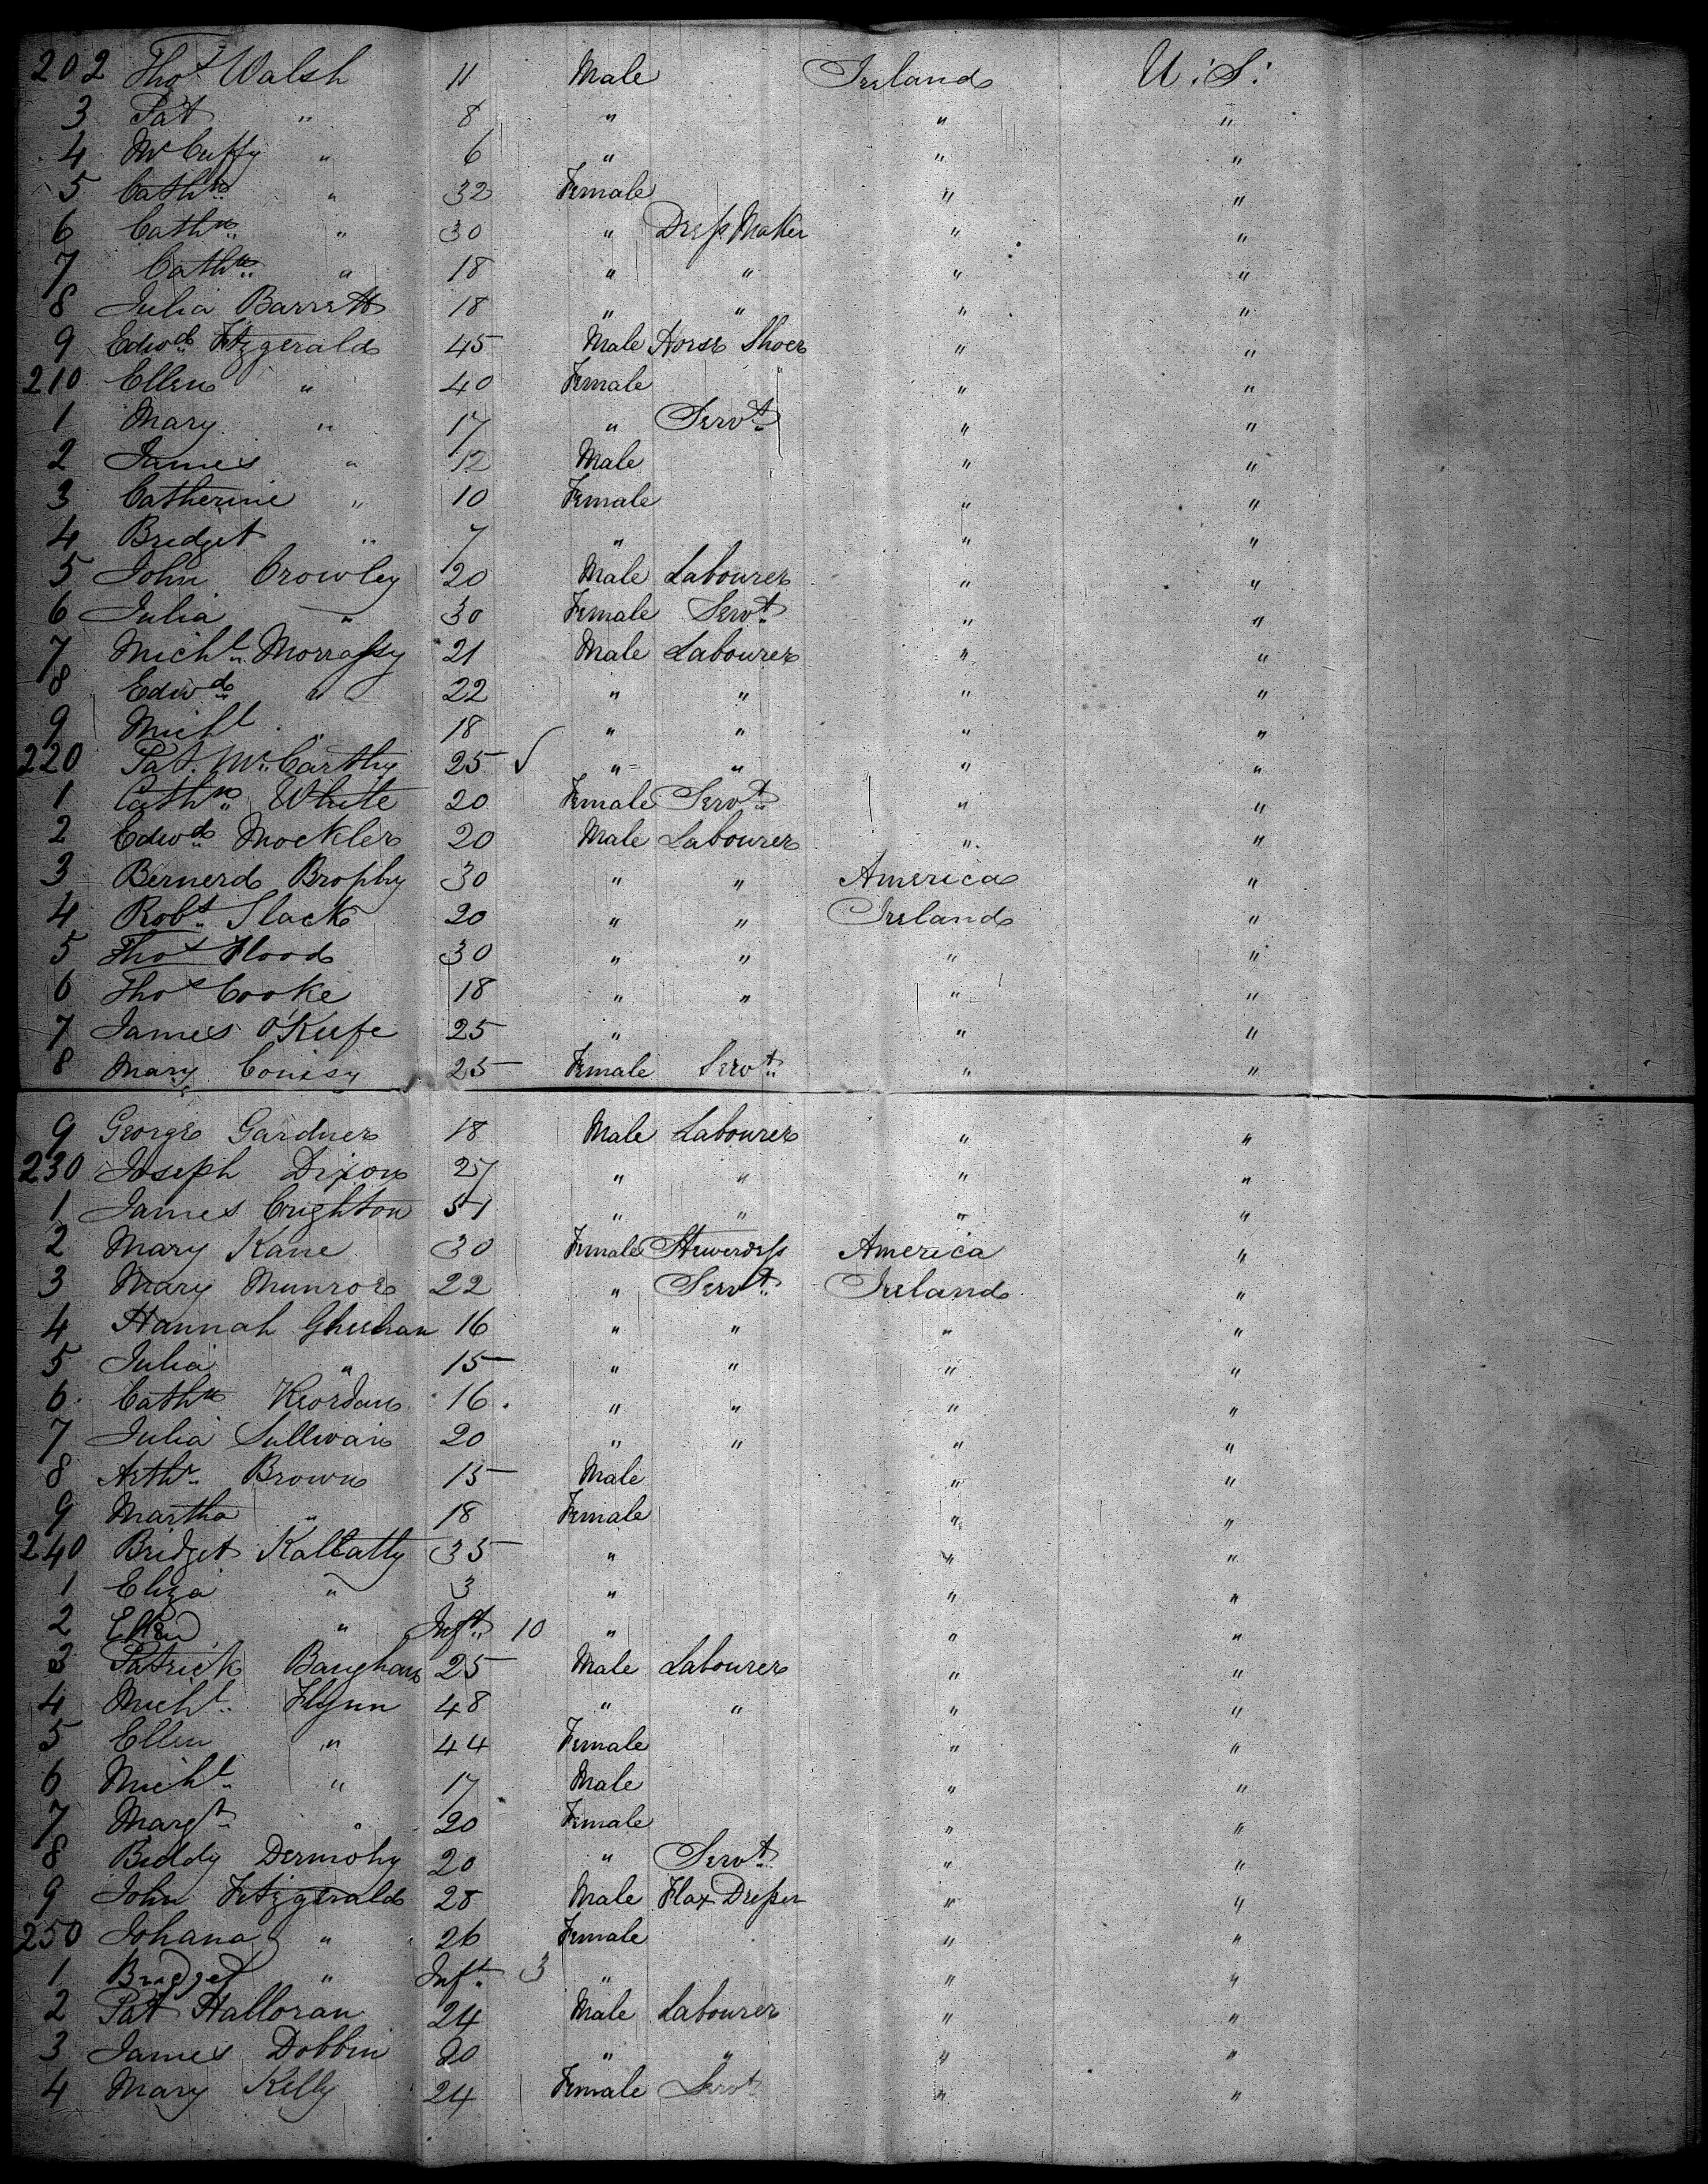 202 Thos Walsh 11 Male Ireland U. S.
3 Pat " 8 " " "
4 McCuffy " 6 " " "
5 Cathn " 32 Female " "
6 Cathn " 30 " Dress Maker " "
7 Cathn " 18 " " " "
8 Julia Barrett 18 " " " "
9 Edwd Fitzgerald 45 Male Horse Shoer " "
210 Ellen " 40 Female " "
1 Mary " 17 " Servt " "
2 James " 12 Male " "
3 Catherine " 10 Female " "
4 Bridget " 7 " " "
5 John Crowley 20 Male Labourer " "
6 Julia " 30 Female Servt " "
7 Michl Morrassy 21 Male Labourer " "
8 Edwd " 22 " " " "
9 Michl " 18 " " " "
220 Pat. McCarthy 25 ✓ " " " "
1 Cathn White 20 Female Servt " "
2 Edwd Mockler 20 Male Labourer " "
3 Bernerd Brophy 30 " " America "
4 Robt Slack 20 " " Ireland "
5 Thos Flood 30 " " " "
6 Thos Cooke 18 " " " "
7 James O'Keefe 25 " " "
8 Mary 25 Female Servt " "
9 George Gardner 18 Male Labourer " "
230 Joseph Dixon 27 " " " "
1 James Crighton 51 " " " "
2 Mary Kane 30 Female Stewerdess America "
3 Mary Munroe 22 " Servt Ireland "
4 Hannah Gheehan 16 " " " "
5 Julia " 15 " " " "
6 Cathn Reordan 16 " " " "
7 Julia Sullivan 20 " " " "
8 Arthr Brown 15 Male " "
9 Martha " 18 Female " "
240 Bridget 35 " " "
1 Eliza " 3 " " "
2 Ellen " Inft 10 " " "
3 Patrick Baughan 25 Male Labourer " "
4 Michl Flynn 48 " " " "
5 Ellen " 44 Female " "
6 Michl " 17 Male " "
7 Margt " 20 Female " "
8 Biddy Dermohy 20 " Servt " "
9 John Fitzgerald 28 Male Flax Dresser " "
250 Johana " 26 Female " "
1 Bridget " Inft 3 " " "
2 Pat Halloran 24 Male Labourer " "
3 James Dobbin 20 " " " "
4 Mary Kelly 24 Female Servt " "